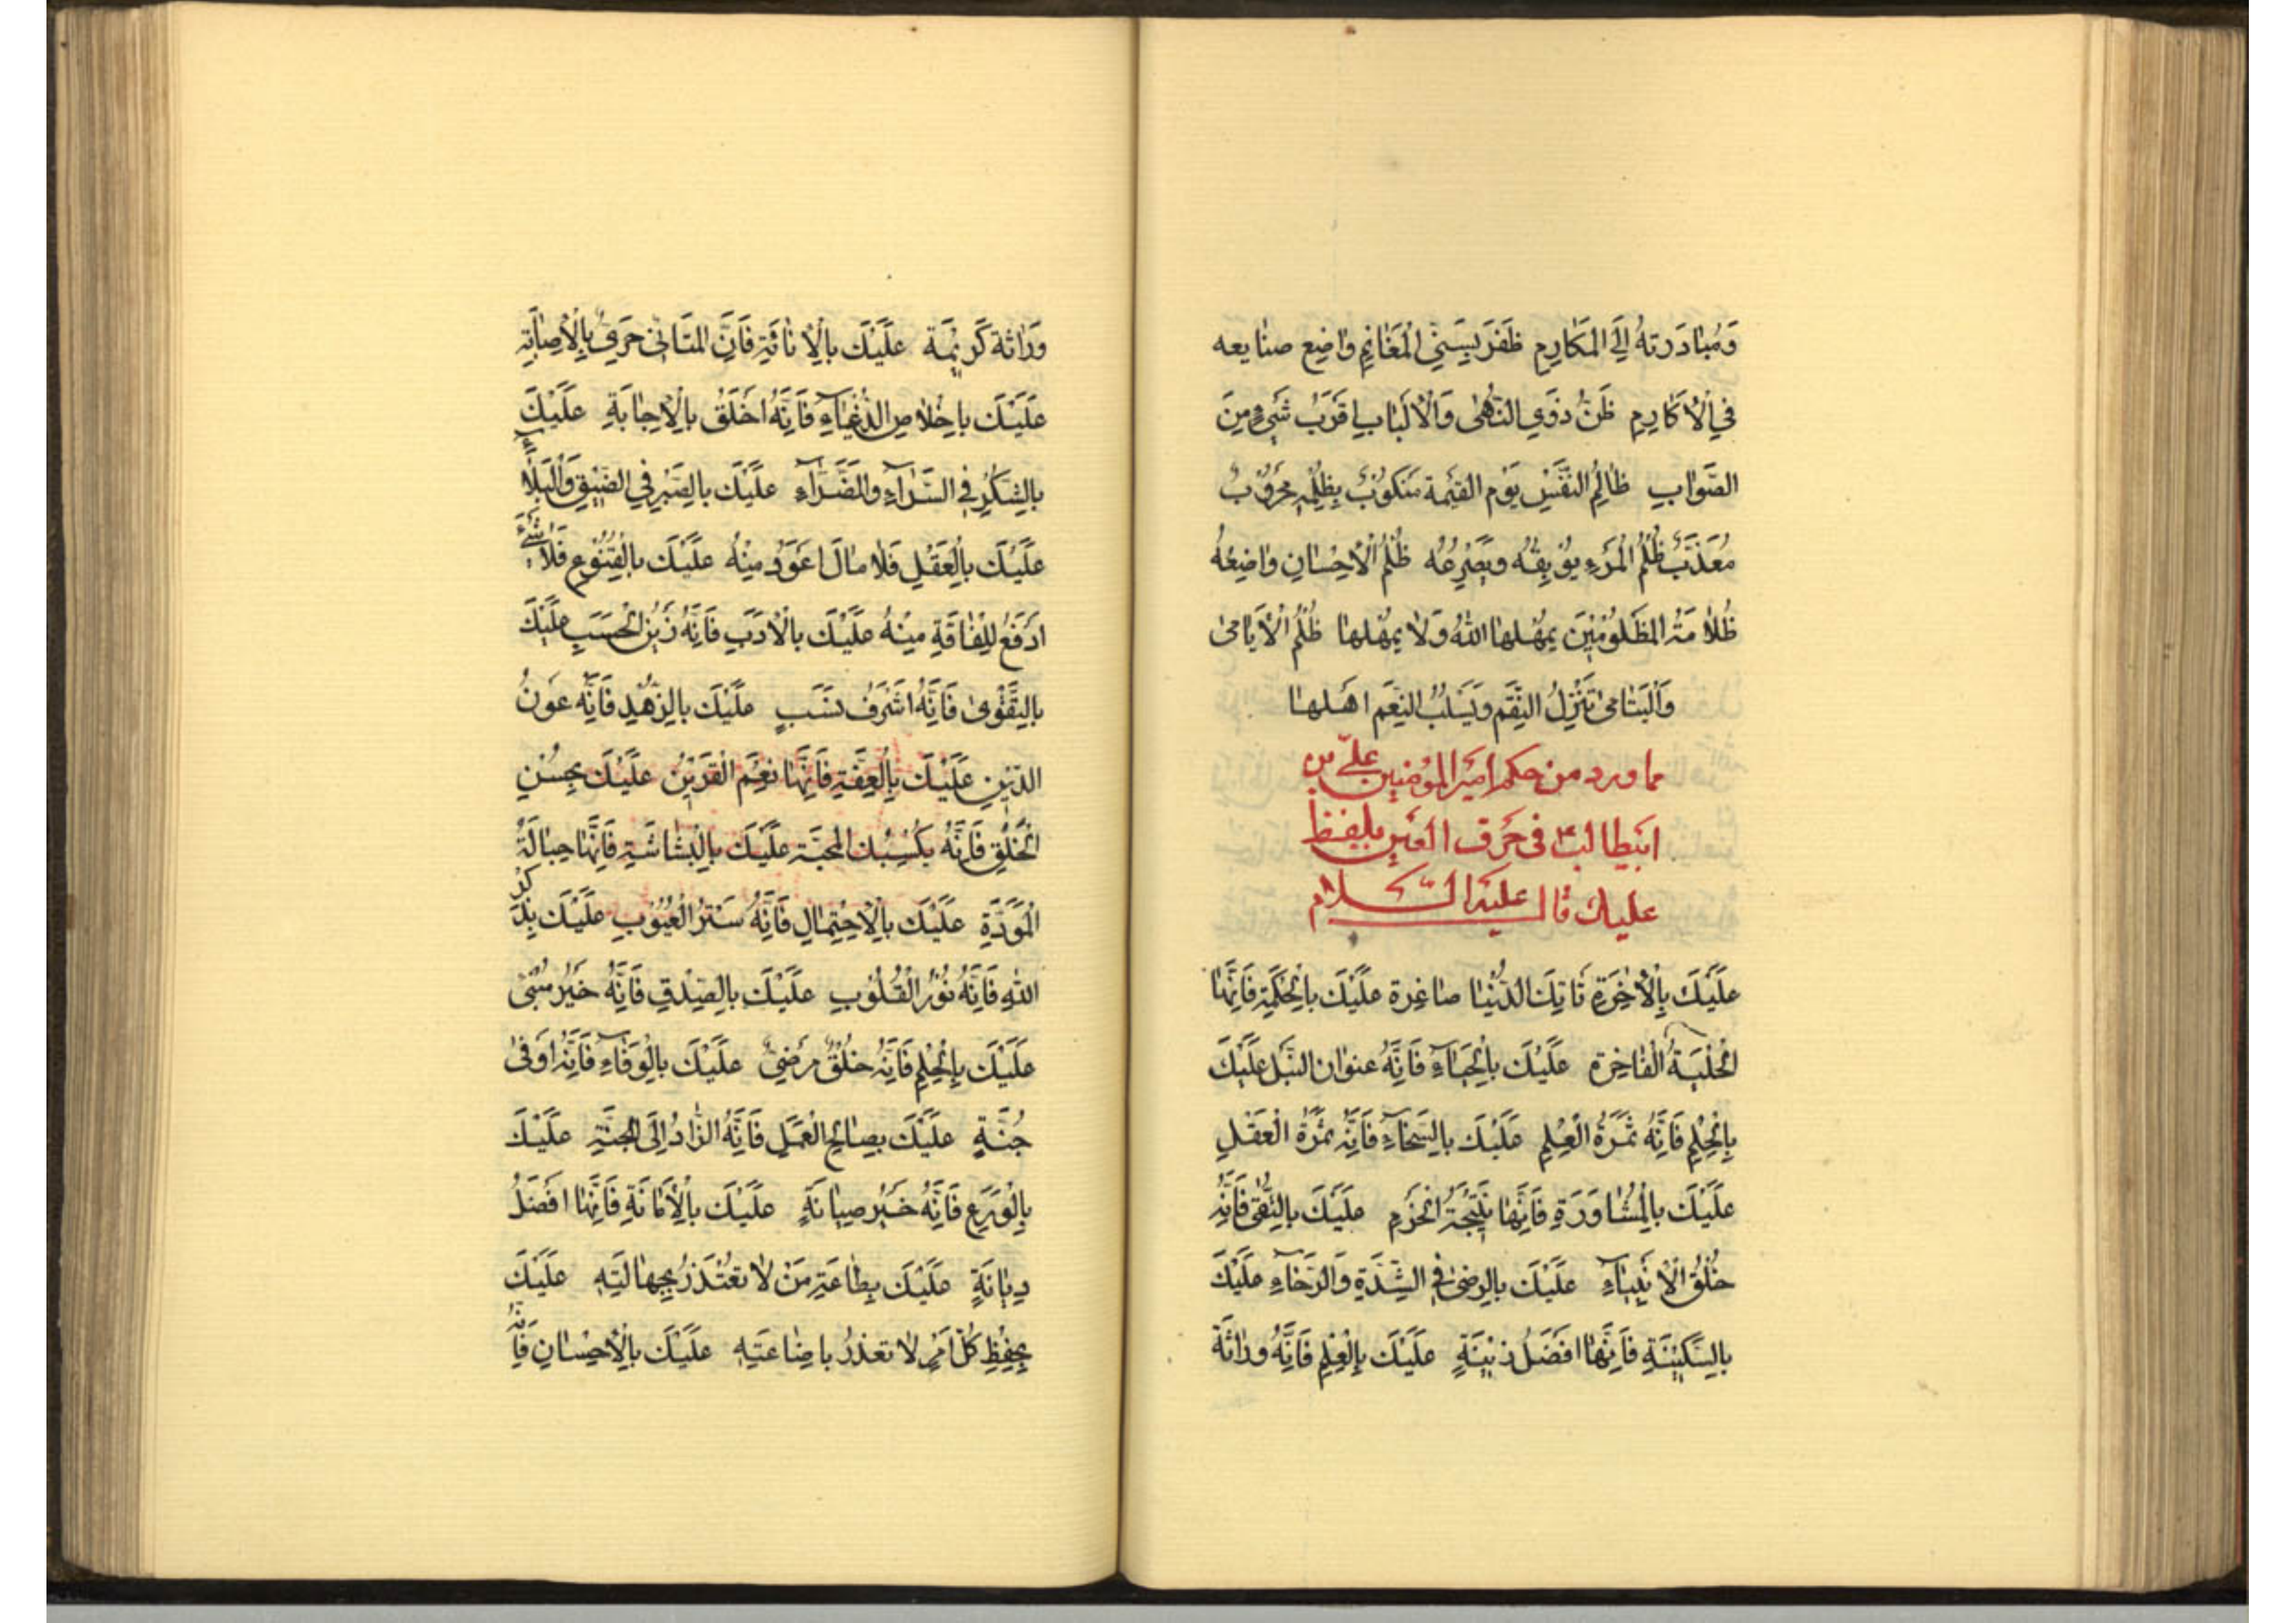 وَمُبٰادَرَتهُ اِلَى المَكٰارِمِ ظَفَرَ بِسَنِىِّ المَغٰانِمِ وٰاضِع صنٰايعه
فِي الْاَكٰارِمِ ظَنُّ ذَوِي النُّهٰى وَالْاَلْبٰابِ اَقْرَبُ شَيْءٍ مِنَ
الصَّوٰابِ ظٰالِمُ النَّفْسِ يَوْم القيٰمة مَنكوُبٌ بِظُلْمِهِ مَحْرُوبٌ
مُعَذَّبٌ ظُلْمُ الْمَرْءِ يوُبِقُهُ وَيَصْرَعُهُ ظُلْمُ الْاِحْسٰانِ وٰاضِعُهُ
ظُلاٰمَةُ المَظْلوُمْيِنَ يُمْهِلهٰا اللهُ وَلاٰ يُهْمِلهٰا ظُلْمُ الْاَيٰامىٰ
وَالْيَتٰامىٰ تُنْزِلُ النِّقَمَ وَيَسْلُبُ النِّعَم اَهْلهٰا
مما ورد من حكم امير المؤمنين علي بن
ابيطالب ع في حرف العين بلفظ
عليك قال عليه السلام
عَلَيْكَ بِالْاٰخِرَةِ تَاتِكَ الدُّنْيٰا صٰاغِرة عَلَيْكَ بِالْحِكْمَةِ فَاِنَّهٰا
الْحُلْيَةُ الْفٰاخِرَة عَلَيْكَ بِالْحَيٰاءِ فَاِنَّهُ عنوٰان النُّبْل عَلَيْكَ
بِالْحِلْمِ فَاِنَّهُ ثَمَرَةُ الْعِلْمِ عَلَيْكَ بِالسَّخٰاءِ فَاِنَّهُ ثَمَرَة الْعَقْلِ
عَلَيْكَ بِالْمُشٰاوَرَةِ فَاِنَّهٰا نَتيٖجَةُ الْحَزْمِ عَلَيْكَ بِالتُّقىٰ فَاِنَّهُ
خُلْقُ الْاَنْبِيٰاءِ عَلَيْكَ بِالرِّضىٰ فِى الشِّدَّةِ وَالرَّخٰاءِ عَلَيْكَ
بِالسَّكيٖنَةِ فَاِنَّهٰا اَفْضَلُ زيٖنَةٍ عَلَيْكَ بِالْعِلْمِ فَاِنَّهُ ورٰاثَة
وَرٰاثة كَريٖمَة عَلَيْكَ بِالْاَنٰاةِ فَاِنَّ المُتَاَنّٖى حَرِىٌّ بِالْاِصٰابَةِ
عَلَيْكَ بِاِخْلاٰصِ الدُّعٰاءِ فَاِنَّهُ اَخْلَقُ بِالْاِجٰابَةِ عَلَيْكَ
بِالشُّكْرِ فِى السَّرّٰاءِ والضَّرّٰاءِ عَلَيْكَ بِالصَّبْرِ فِي الضّيٖقِ وَالْبَلاٰءِ
عَلَيْكَ بِالْعَقْلِ فَلاٰ مٰالَ اَعْوَدُ مِنْهُ عَلَيْكَ بِالْقُنُوُعِ فَلاٰ شَيْءَ
اَدْفَعُ لِلْفٰاقَةِ مِنْهُ عَلَيْكَ بِالْاَدَبِ فَاِنَّهُ زَيْنُ الْحَسَبِ عَلَيْكَ
بِالتَّقْوىٰ فَاِنَّهُ اَشْرَفُ نَسَبٍ عَلَيْكَ بِالزُّهْدِ فَاِنَّه عَوْنُ
الدّيٖنِ عَلَيْكَ بِالْعِفَّةِ فَاِنَّهٰا نِعْمَ الْقَرِيْنُ عَلَيْكَ بِحُسْنِ
الْخُلْقِ فَاِنَّهُ يَكْسِبُكَ الْمَحَبَّة عَلَيْكَ بِالْبَشٰاشَةِ فَاِنَّهٰا حِبٰالَةُ
الْمَوَدَّةِ عَلَيْكَ بِالْاِحْتِمٰالِ فَاِنَّهُ سَتْرُ الْعُيُوُبِ عَلَيْكَ بِذِكْرِ
اللهِ فَاِنَّهُ نوُرُ الْقُلوُبِ عَلَيْكَ بِالصِّدْقِ فَاِنَّهُ خَيْرُ مَبْنىٰ
عَلَيْكَ بِالْحِلْمِ فَاِنَّهُ خُلْقٌ مَرْضِىٌّ عَلَيْكَ بِالْوَفٰاءِ فَاِنَّهُ اَوْفىٰ
جُنَّةٍ عَلَيْكَ بِصٰالِحِ الْعَمَلِ فَاِنَّهُ الزّٰادُ اِلَى الْجَنَّةِ عَلَيْكَ
بِالْوَرَعِ فَاِنَّهُ خَيْرُ صِيٰانَةٍ عَلَيْكَ بِالْاَمٰانَةِ فَاِنَّهٰا اَفْضَلُ
دِيٰانَةٍ عَلَيْكَ بِطٰاعَةِ مَنْ لاٰ تُعْتَذَرُ بِجِهٰالَتِهِ عَلَيْكَ
بِحِفْظِ كُلِّ اَمْرٍ لاٰ تعذرُ باِضٰاعَتِهِ عَلَيْكَ بِالْاِحْسٰانِ فَاِنَّهُ